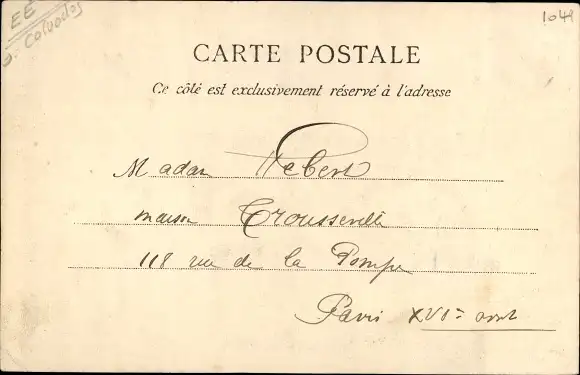 EE
Calvados
1041
CARTE POSTALE
Ce côté est exclusivement réservé à l'adresse
Madam Hebert
maison Trousseville
118 rue de la Pompe
Paris XVIe arrt